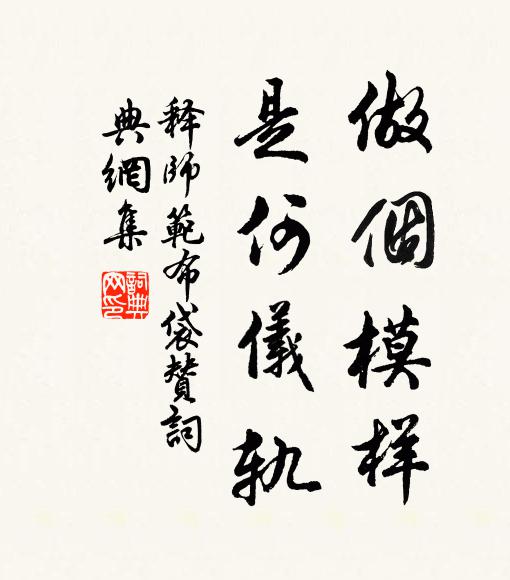 做個模样
是何儀軌
释師範布袋贊詞
典網集
詞典网印